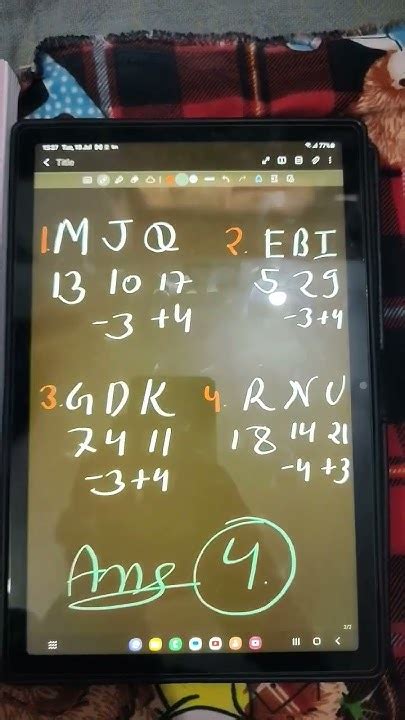 77%
Title
1. M J Q
13 10 17
-3 +4
2. E B I
5 2 9
-3 +4
3. G D K
7 4 11
-3 +4
4. R N U
18 14 21
-4 +3
Ans 4.
2/2